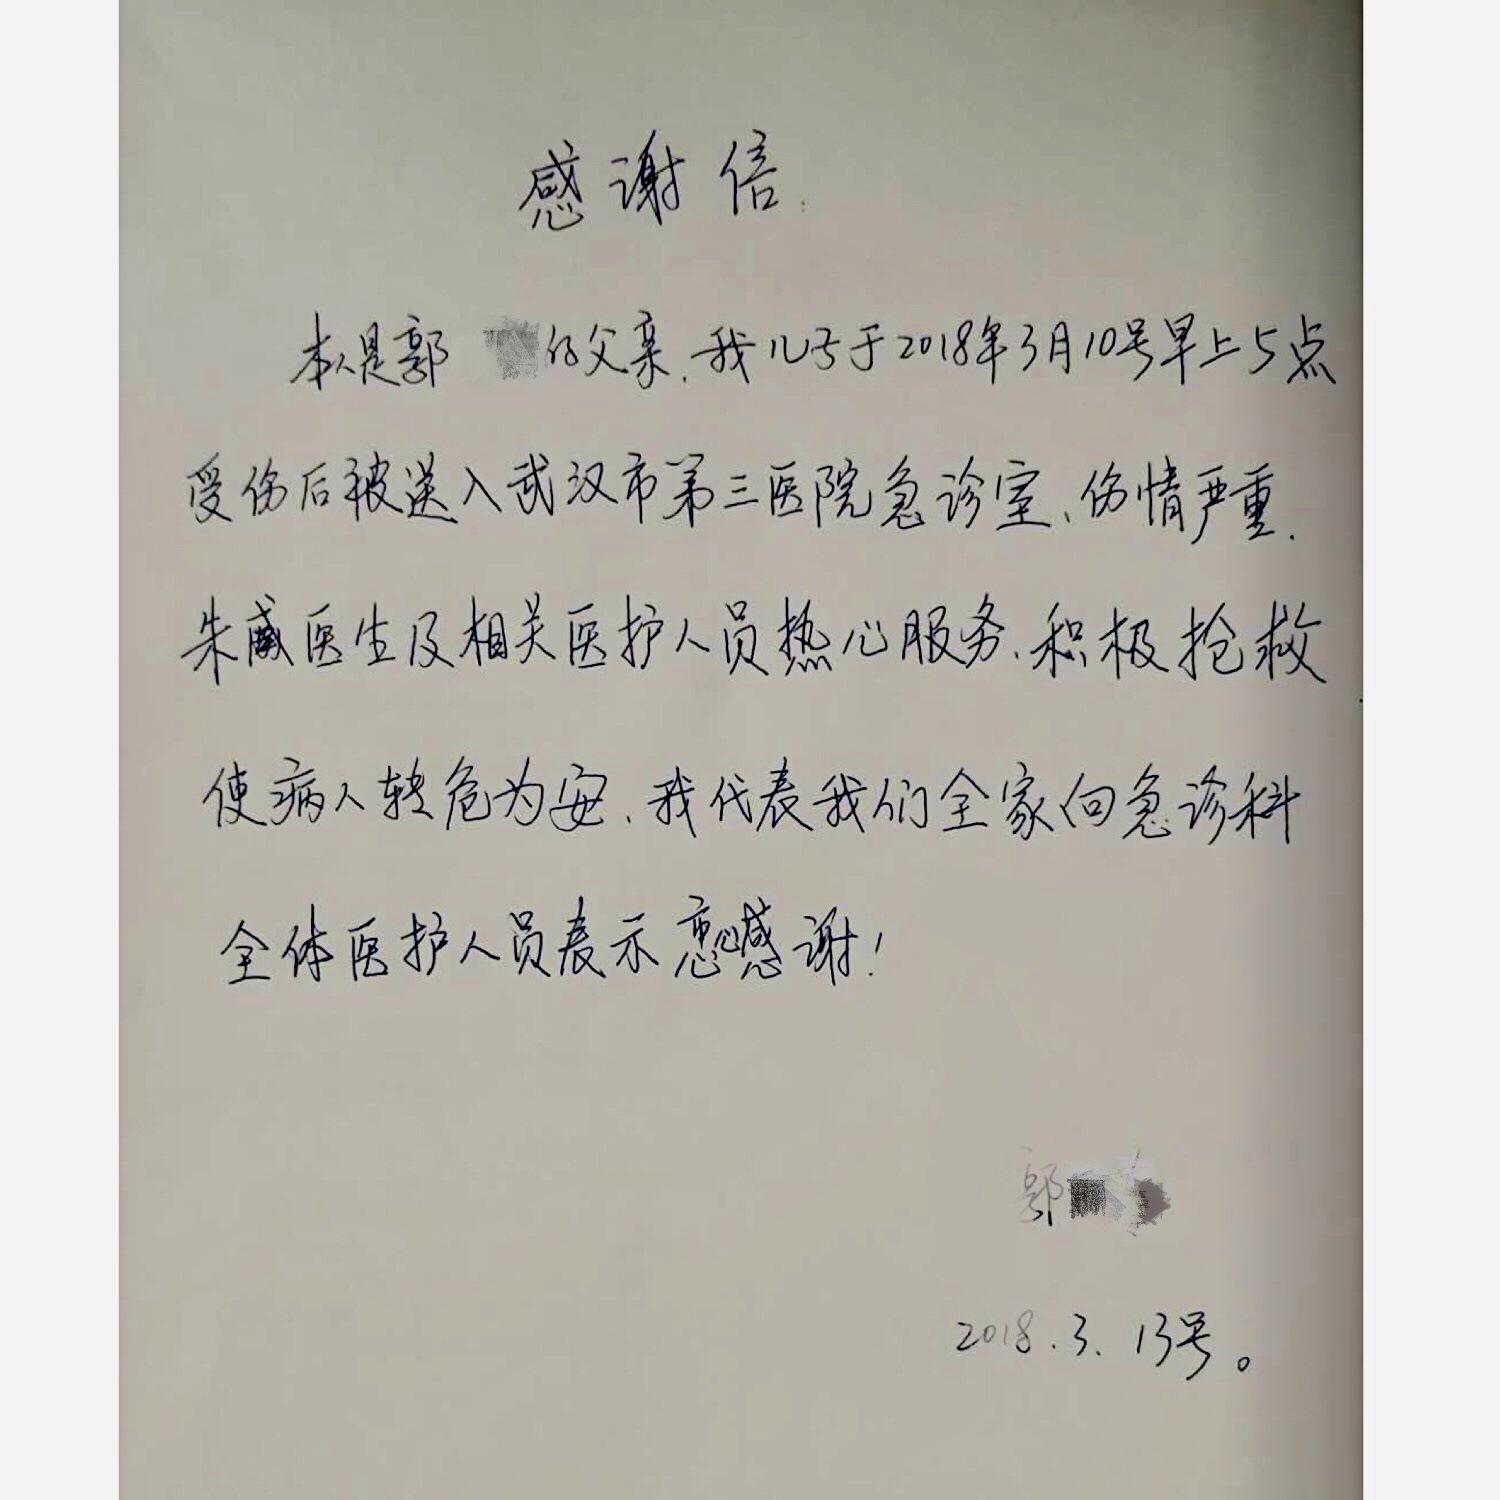 感谢信
本人是郭 的父亲,我儿子于2018年3月10号早上5点
受伤后被送入武汉市第三医院急诊室、伤情严重.
朱威医生及相关医护人员热心服务、积极抢救
使病人转危为安、我代表我们全家向急诊科
全体医护人员表示衷心感谢!
郭
2018.3.13号。